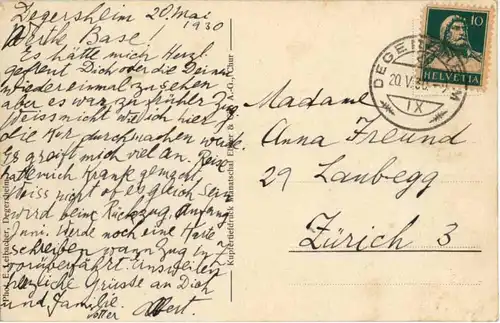 Degersheim 20. Mai
1930
Werthe Base!
Es hätte mich Herzl.
gefreut Dich oder die Deinen
wieder einmal zu sehen
aber es war zu früher Zug.
Weiss nicht will ich hier
die Kur durchmachen werde.
Es greift mich viel an. Reise
hatte mich Krank gemacht
Weiss nicht ob es gleich sein
wird beim Rückzug, Anfang
Juni. Werde noch eine Karte
schreiben wann Zug in Z
vorüberfährt. Unsweilen
herzliche Grüsse an Dich
und Familie
Vetter Albert.
Phot. E. Leibacher, Degersheim
Kupfertiefdruck Manatschal Ebner & Cie. A.-G., Chur
10
HELVETIA
DEGERSHEIM
20.V.30.
IX
Madame
Anna Freund
29 Laubegg
Zürich 3